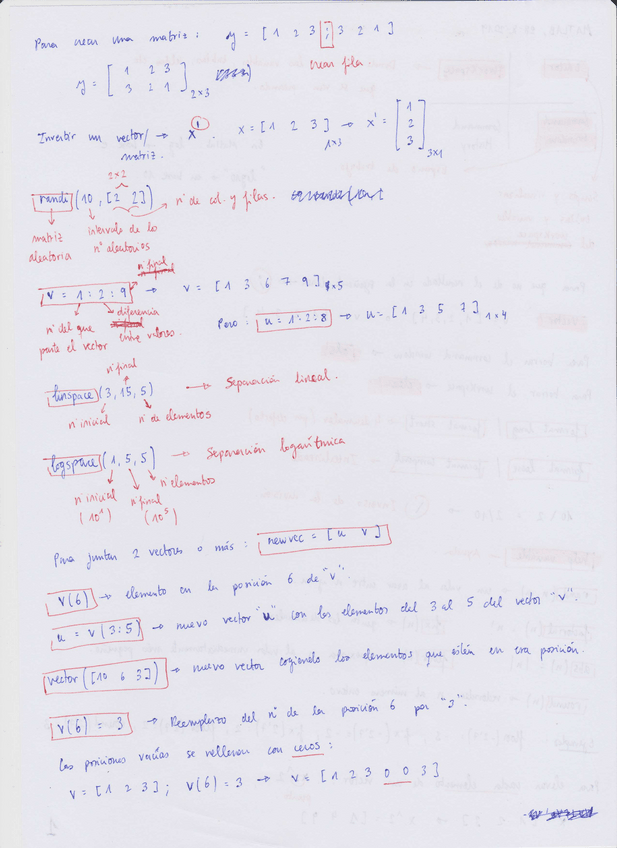 Para crear una matriz: y = [1 2 3 ; 3 2 1]
crear fila.
y = [1 2 3
3 2 1] 2x3
Invertir un vector/matriz. → x' . x = [1 2 3] 1x3 → x' = [1
2
3] 3x1
2x2
randi(10, [2 2]) → nº de col. y filas.
matriz aleatoria
intervalo de los nº aleatorios
nº final
v = 1:2:9 → v = [1 3 6 7 9] 1x5
nº del que parte el vector
diferencia entre valores.
Pero: u = 1:2:8 → u = [1 3 5 7] 1x4
nº final
linspace(3,15,5) → Separación lineal.
nº inicial
nº de elementos
logspace(1,5,5) → Separación logarítmica
nº inicial (10¹)
nº final (10⁵)
nº elementos
Para juntar 2 vectores o más: newvec = [u v]
v(6) → elemento en la posición 6 de "v"
u = v(3:5) → nuevo vector "u" con los elementos del 3 al 5 del vector "v".
vector([10 6 3]) → nuevo vector cogiendo los elementos que estén en esa posición.
v(6) = 3 → Reemplazo del nº de la posición 6 por "3".
Las posiciones vacías se rellenan con ceros:
v = [1 2 3]; v(6) = 3 → v = [1 2 3 0 0 3]
1